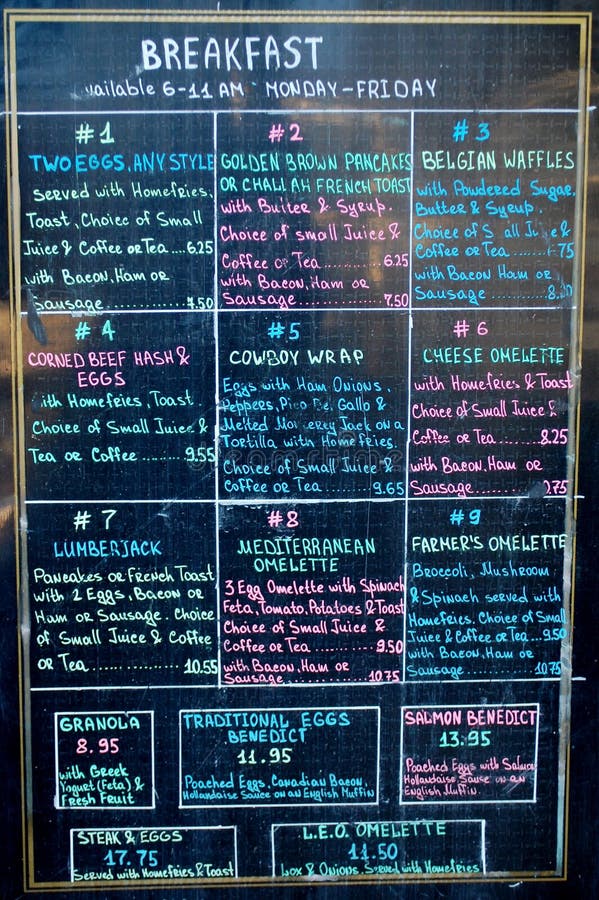 BREAKFAST
6-11 AM MONDAY-FRIDAY
#1
TWO EGGS, ANY STYLE
Served with Homefries,
Toast, Choice of Small
Juice & Coffee or Tea....6.25
with Bacon, Ham or
Sausage..........7.50
#2
GOLDEN BROWN PANCAKES
OR CHALLAH FRENCH TOAST
with Butter & Syrup.
Choice of small Juice &
Coffee or Tea.......6.25
with Bacon, Ham or
Sausage..........7.50
#3
BELGIAN WAFFLES
with Powdered Sugar,
Butter & Syrup.
Choice of &
Coffee or Tea
with Bacon Ham or
Sausage
#4
CORNED BEEF HASH &
EGGS
ith Homefries, Toast
Choice of Small Juice &
Tea or Coffee.......9.55
#5
COWBOY WRAP
Eggs with Ham Onions,
Peppers, Gallo &
Melted Jack on a
Tortilla with Homefries.
Choice of Small Juice &
Coffee or Tea.......9.65
#6
CHEESE OMELETTE
with Homefries & Toast
Choice of Small Juice &
Coffee or Tea.......8.25
with Bacon, Ham or
Sausage
#7
LUMBERJACK
Pancakes or French Toast
with 2 Eggs, Bacon or
Ham or Sausage. Choice
of Small Juice & Coffee
or Tea..............10.55
#8
MEDITERRANEAN
OMELETTE
3 Egg Omelette with Spinach
Feta, Tomato, Potatoes & Toast
Choice of Small Juice &
Coffee or Tea.......9.50
with Bacon, Ham or
Sausage..........10.75
#9
FARMER'S OMELETTE
Broccoli, Mushroom
& Spinach served with
Homefries. Choice of Small
Juice & Coffee or Tea...9.50
with Bacon, Ham or
Sausage..........10.75
GRANOLA
8.95
with Greek
Yogurt (Feta) &
Fresh Fruit
TRADITIONAL EGGS
BENEDICT
11.95
Poached Eggs, Canadian Bacon,
Hollandaise Sauce on an English Muffin
SALMON BENEDICT
13.95
Poached Eggs with Salmon
Hollandaise Sause on an
English Muffin.
STEAK & EGGS
17.75
Served with Homefries & Toast
L.E.O. OMELETTE
11.50
Lox & Onions, Served with Homefries